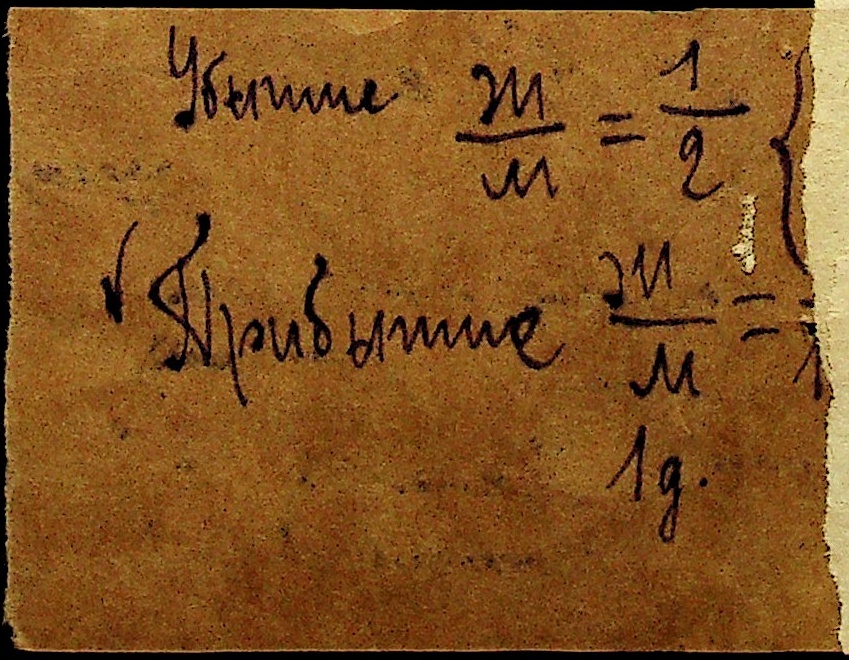 Убытие Ж/М = 1/2 {
Прибытие Ж/М =
1д.